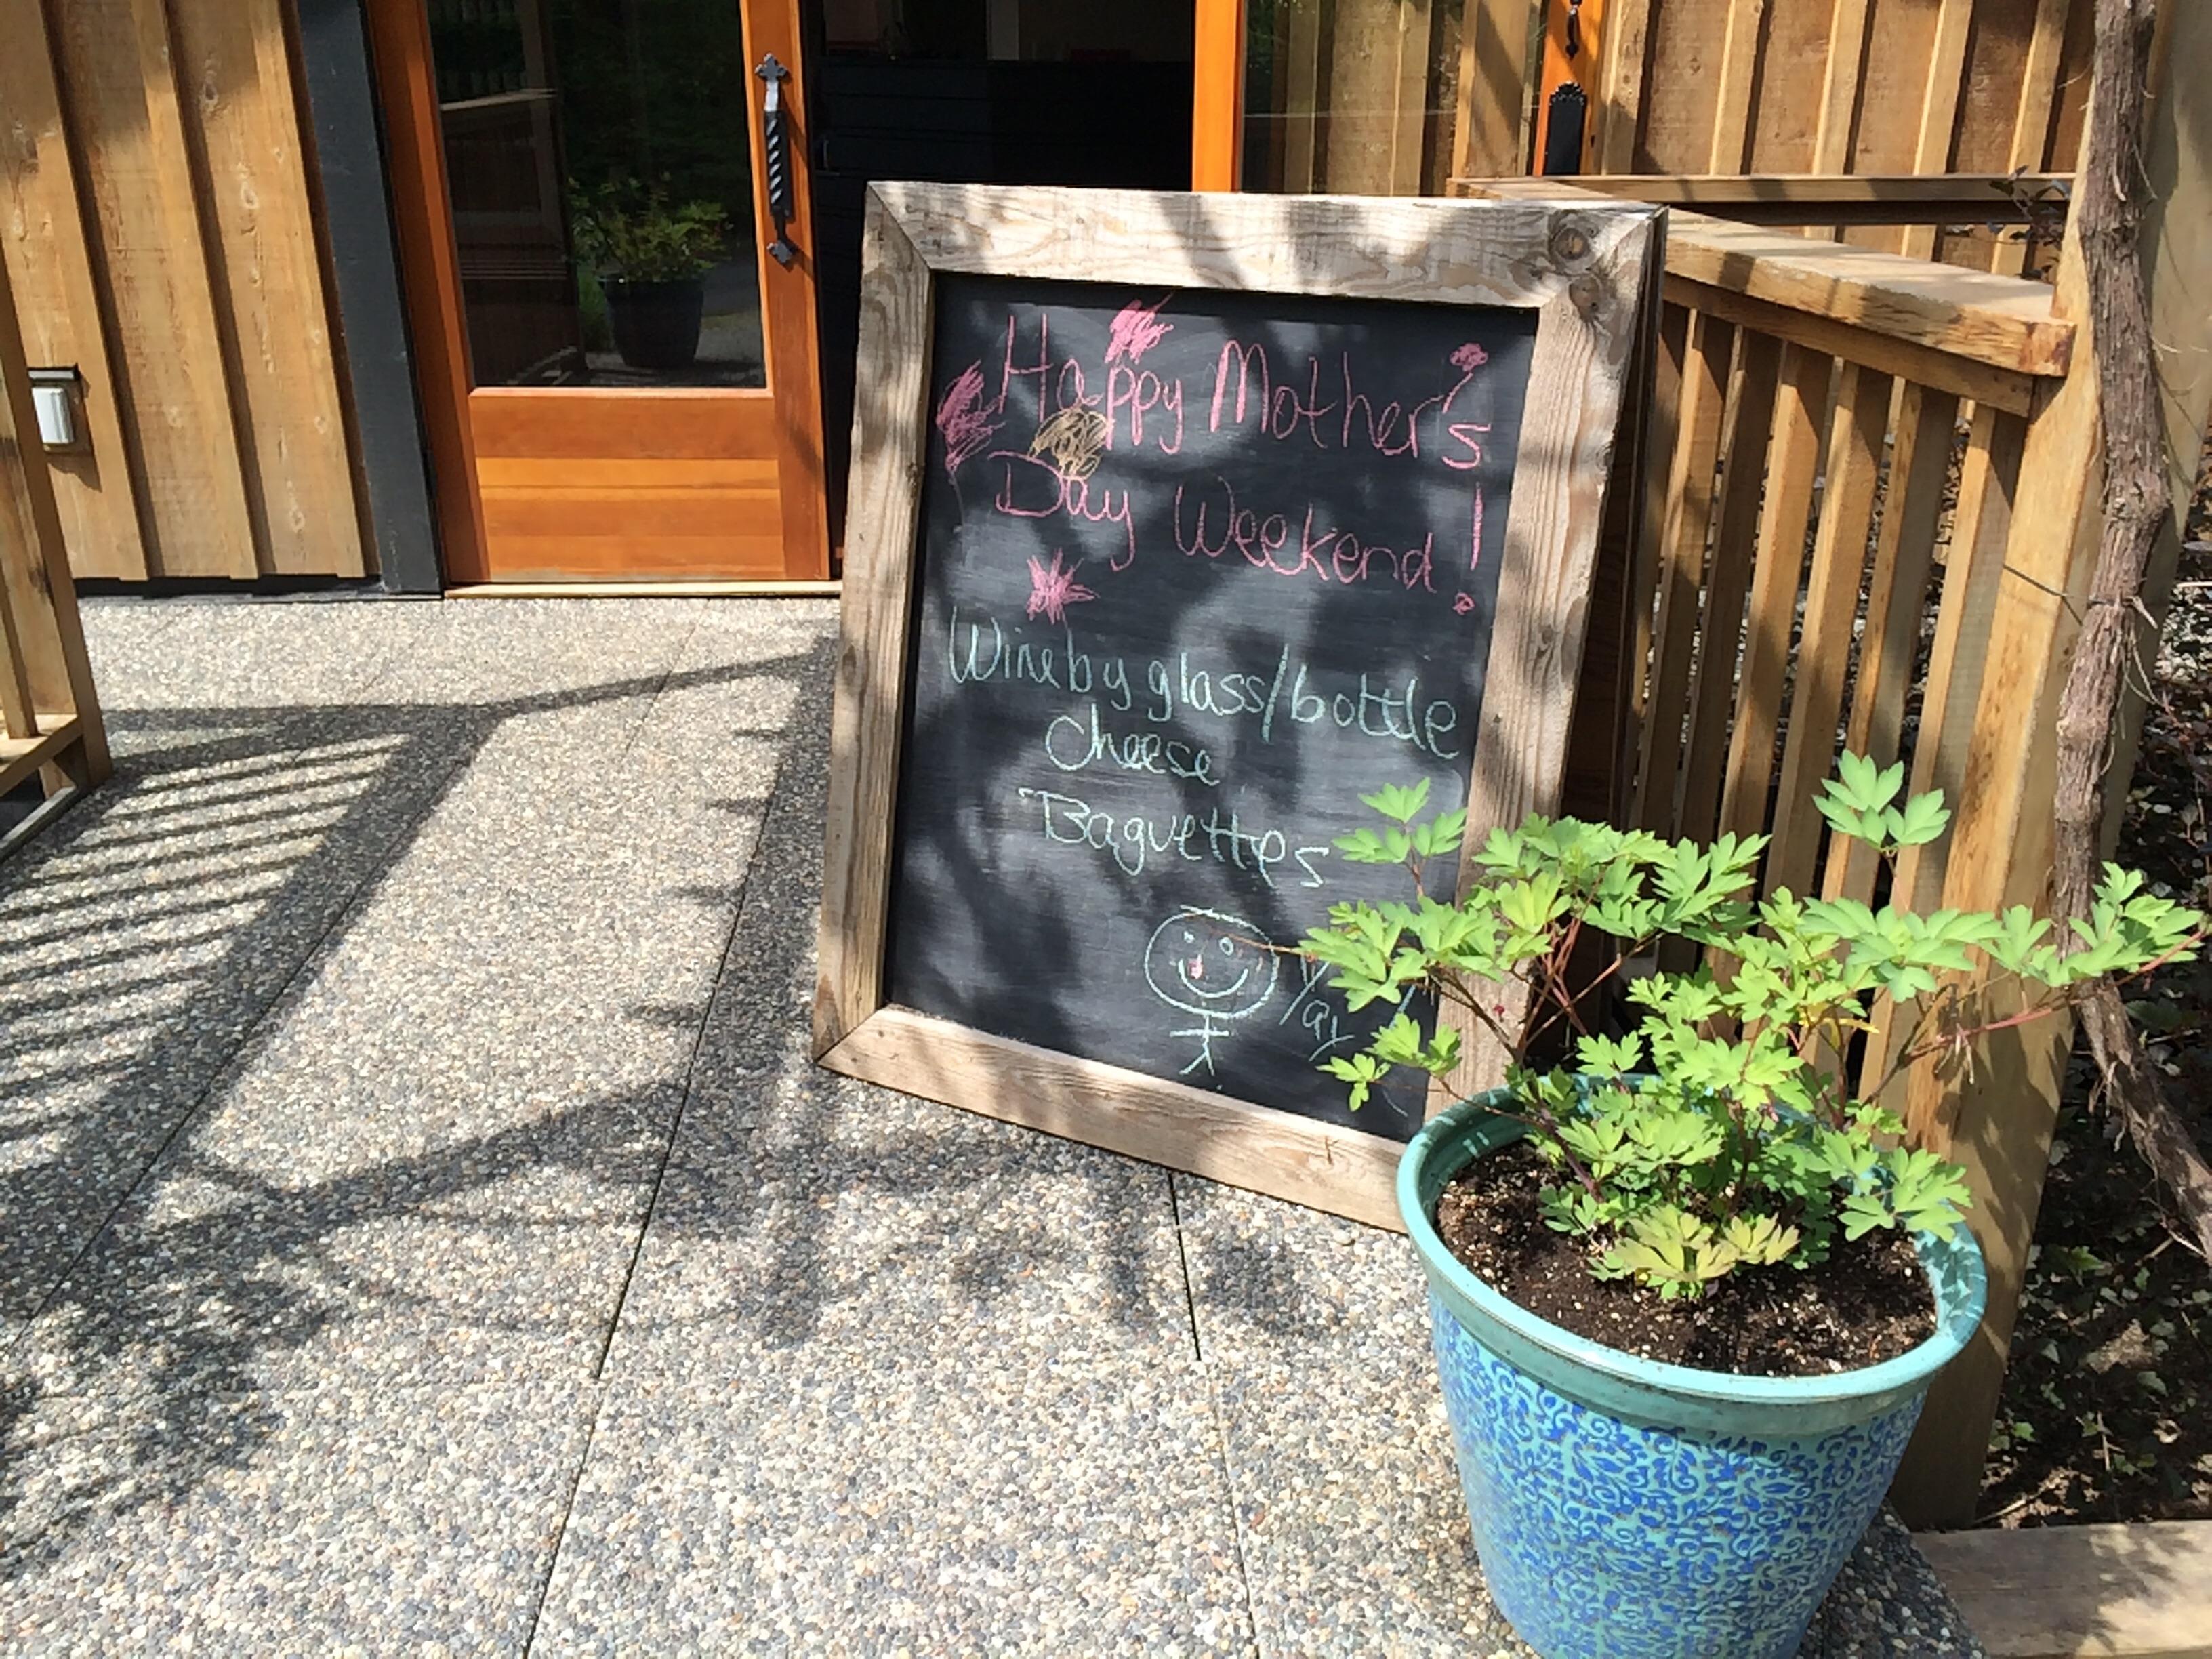 Happy Mother's
Day Weekend!
Wine by glass/bottle
Cheese
Baguettes
Yay